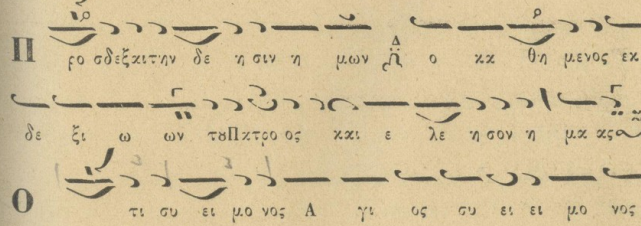 Π ρο σδεξκιτην δε η σιν η μων Δ ο κκ θη μενος εκ
δε ξι ω ων τȣΠκτρο ος κκι ε λε η σον η μκ κς
Ο τι συ ει μο νος Α γι ος συ ει ει μο νος